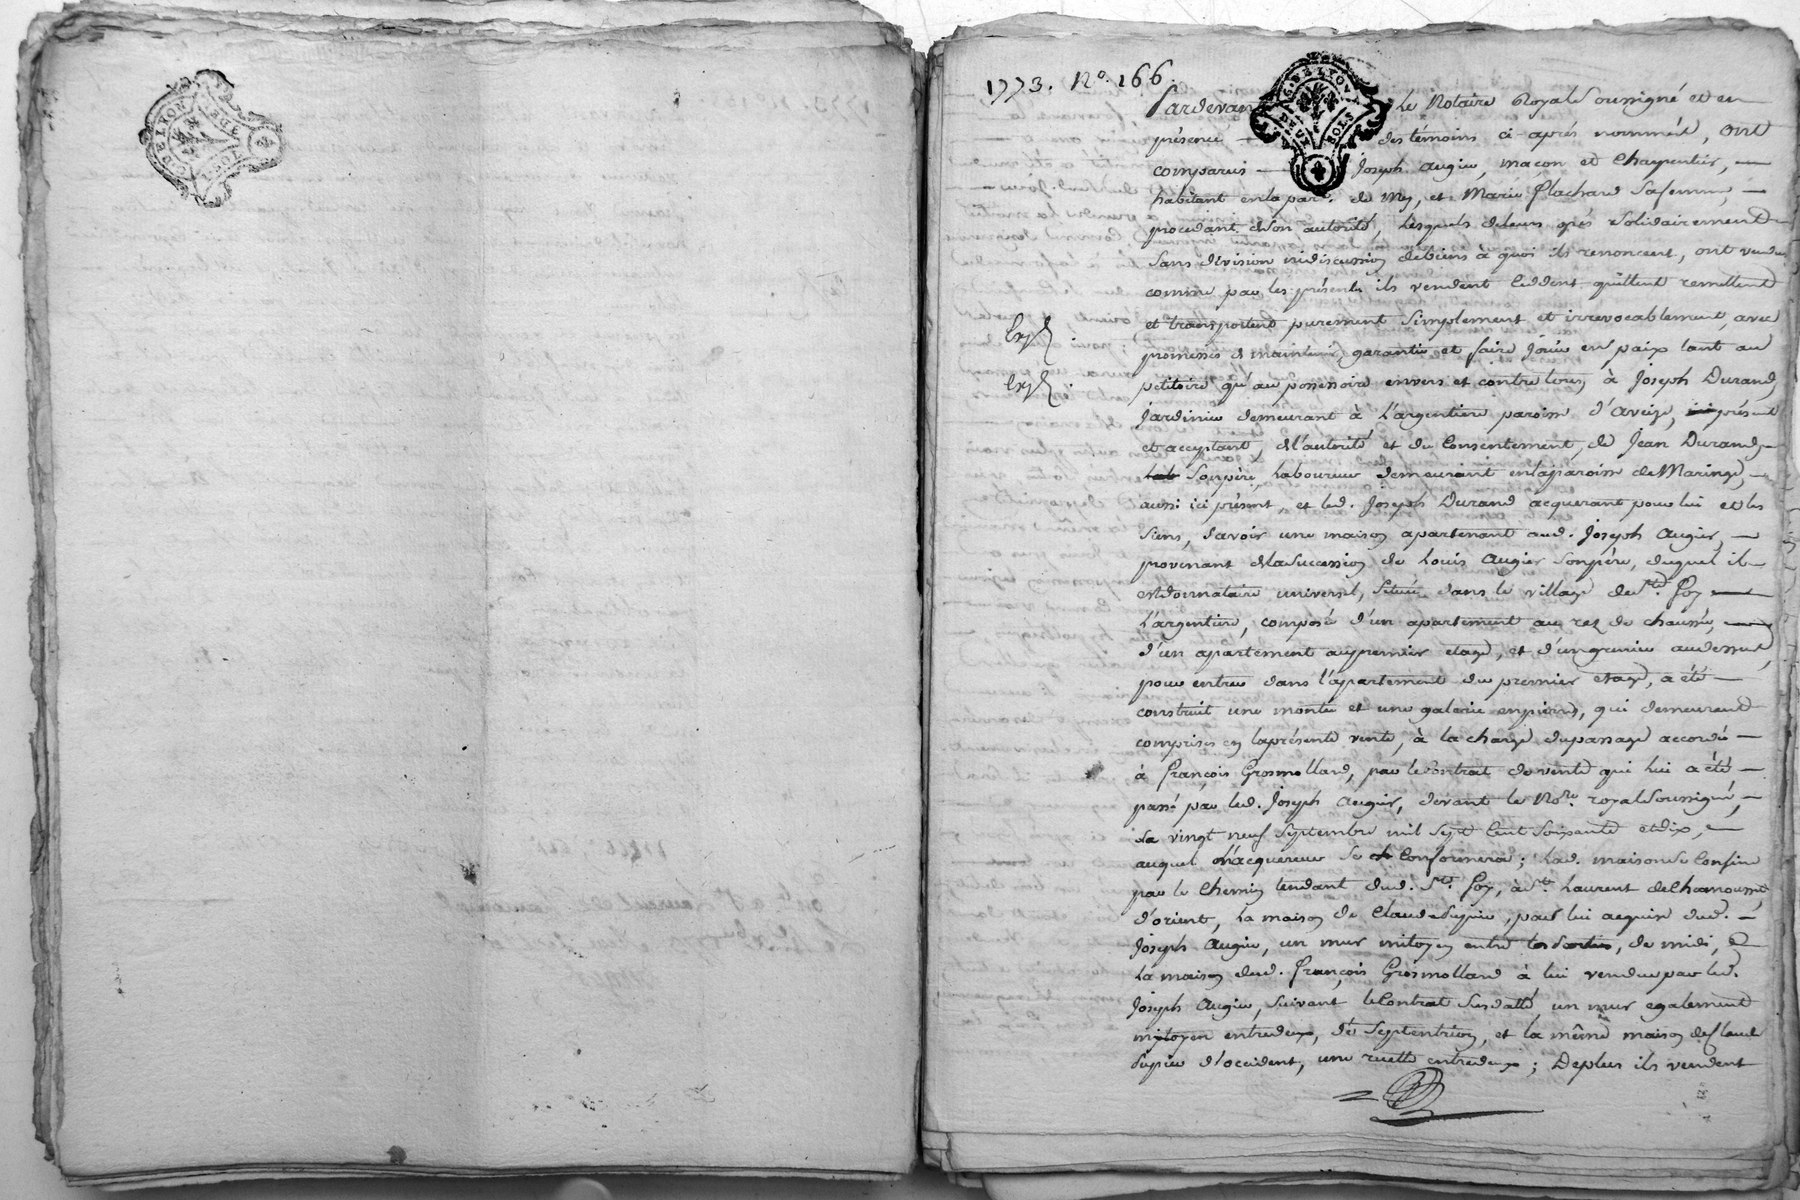 1773. No. 166.
Pardevant Le Notaire Royal Soussigné et en
présence des témoins ci-après nommés, ont
comparus Joseph Augier, maçon et Charpentier,
habitant en la par. de Mey, et Marie Plachard Safemme,
procédant de Son autorité, Lesquels de leurs grés Solidairement
Sans division ni discussion de biens à quoi ils renoncent, ont vendu
comme par les présentes ils vendent Ceddent quittent remettent
et transportent purement Simplement et irrevocablement, avec
promesses de maintenir, garantir et faire Jouir en paix tant au
petitoire qu'au possessoire envers et contre tous, à Joseph Durand,
Jardinier demeurant à L'argentiere paroisse d'Aveize, présent
et acceptant, de l'autorité et du Consentement, de Jean Durand,
Sonpère, Laboureur demeurant en la paroisse de Maringe,
aussi ici présent, et led. Joseph Durand acquerant pour lui et les
Siens, Savoir une maison apartenant aud. Joseph Augier,
provenant de la Succession de Louis Augier Sonpère, duquel il
est donnataire universel, Située dans le village de Ste. Foy
L'argentiere, composé d'un apartement au rez de chaussée,
d'un apartement au premier etage, et d'un grenier au dessus,
pour entrer dans l'apartement du premier etage, a été
construit une montée et une galerie en pierres, qui demeurent
comprises en la présente vente, à la charge du passage accordé
à François Grosmolland, par le Contrat de vente qui Lui a été,
passé par led. Joseph Augier, devant le Nore. royal Soussigné,
Le vingt neuf Septembre mil Sept Cent Soixante et dix,
auquel l'acquereur Se Conformera; Lad. maison Se Confine
par le Chemin tendant dud. Ste. Foy, à St. Laurent de Chamousset
d'orient, La maison de Claude Supier, par lui acquise dud.
Joseph Augier, un mur mitoyen entre, de midi,
La maison dud. François Grosmolland à lui vendue par led.
Joseph Augier, Suivant le Contrat Susdatté, un mur egalement
mitoyen entredeux, de Septentrion, et la même maison de Claude
Supier d'occident, une ruelle entredeux; De plus ils vendent